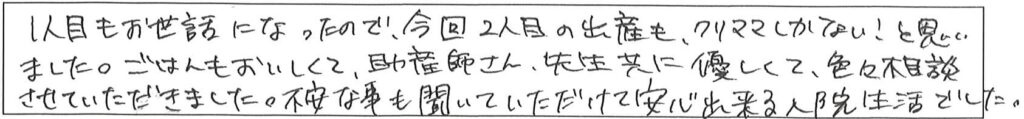 1人目もお世話になったので、今回2人目の出産も、クリママしかない!と思い
ました。ごはんもおいしくて、助産師さん、先生共に優しくて、色々相談
させていただきました。不安な事も聞いていただけて安心出来る入院生活でした。